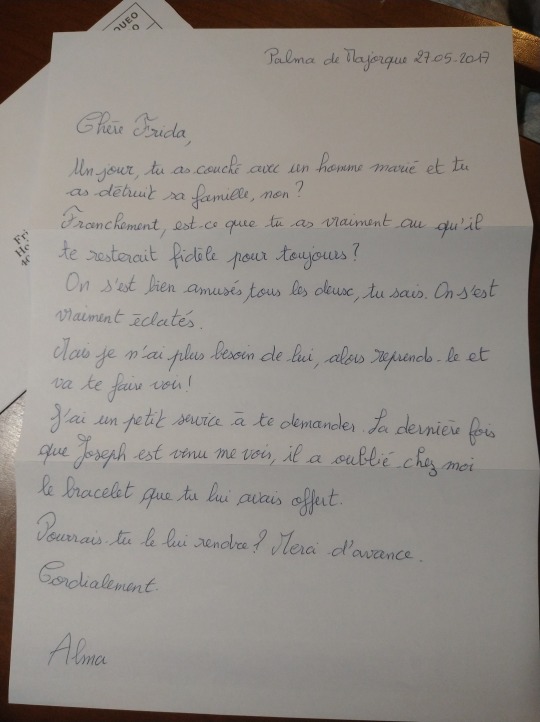 QUEO
Palma de Majorque 27.05-2017
Chère Frida,
Un jour, tu as couché avec un homme marié et tu
as détruit sa famille, non?
Franchement, est-ce que tu as vraiment cru qu'il
te resterait fidèle pour toujours?
On s'est bien amusés, tous les deux, tu sais. On s'est
vraiment éclatés.
Mais je n'ai plus besoin de lui, alors reprends-le et
va te faire voir!
J'ai un petit service à te demander. La dernière fois
que Joseph est venu me voir, il a oublié chez moi
le bracelet que tu lui avais offert.
Pourrais-tu le lui rendre? Merci d'avance.
Cordialement.
Alma